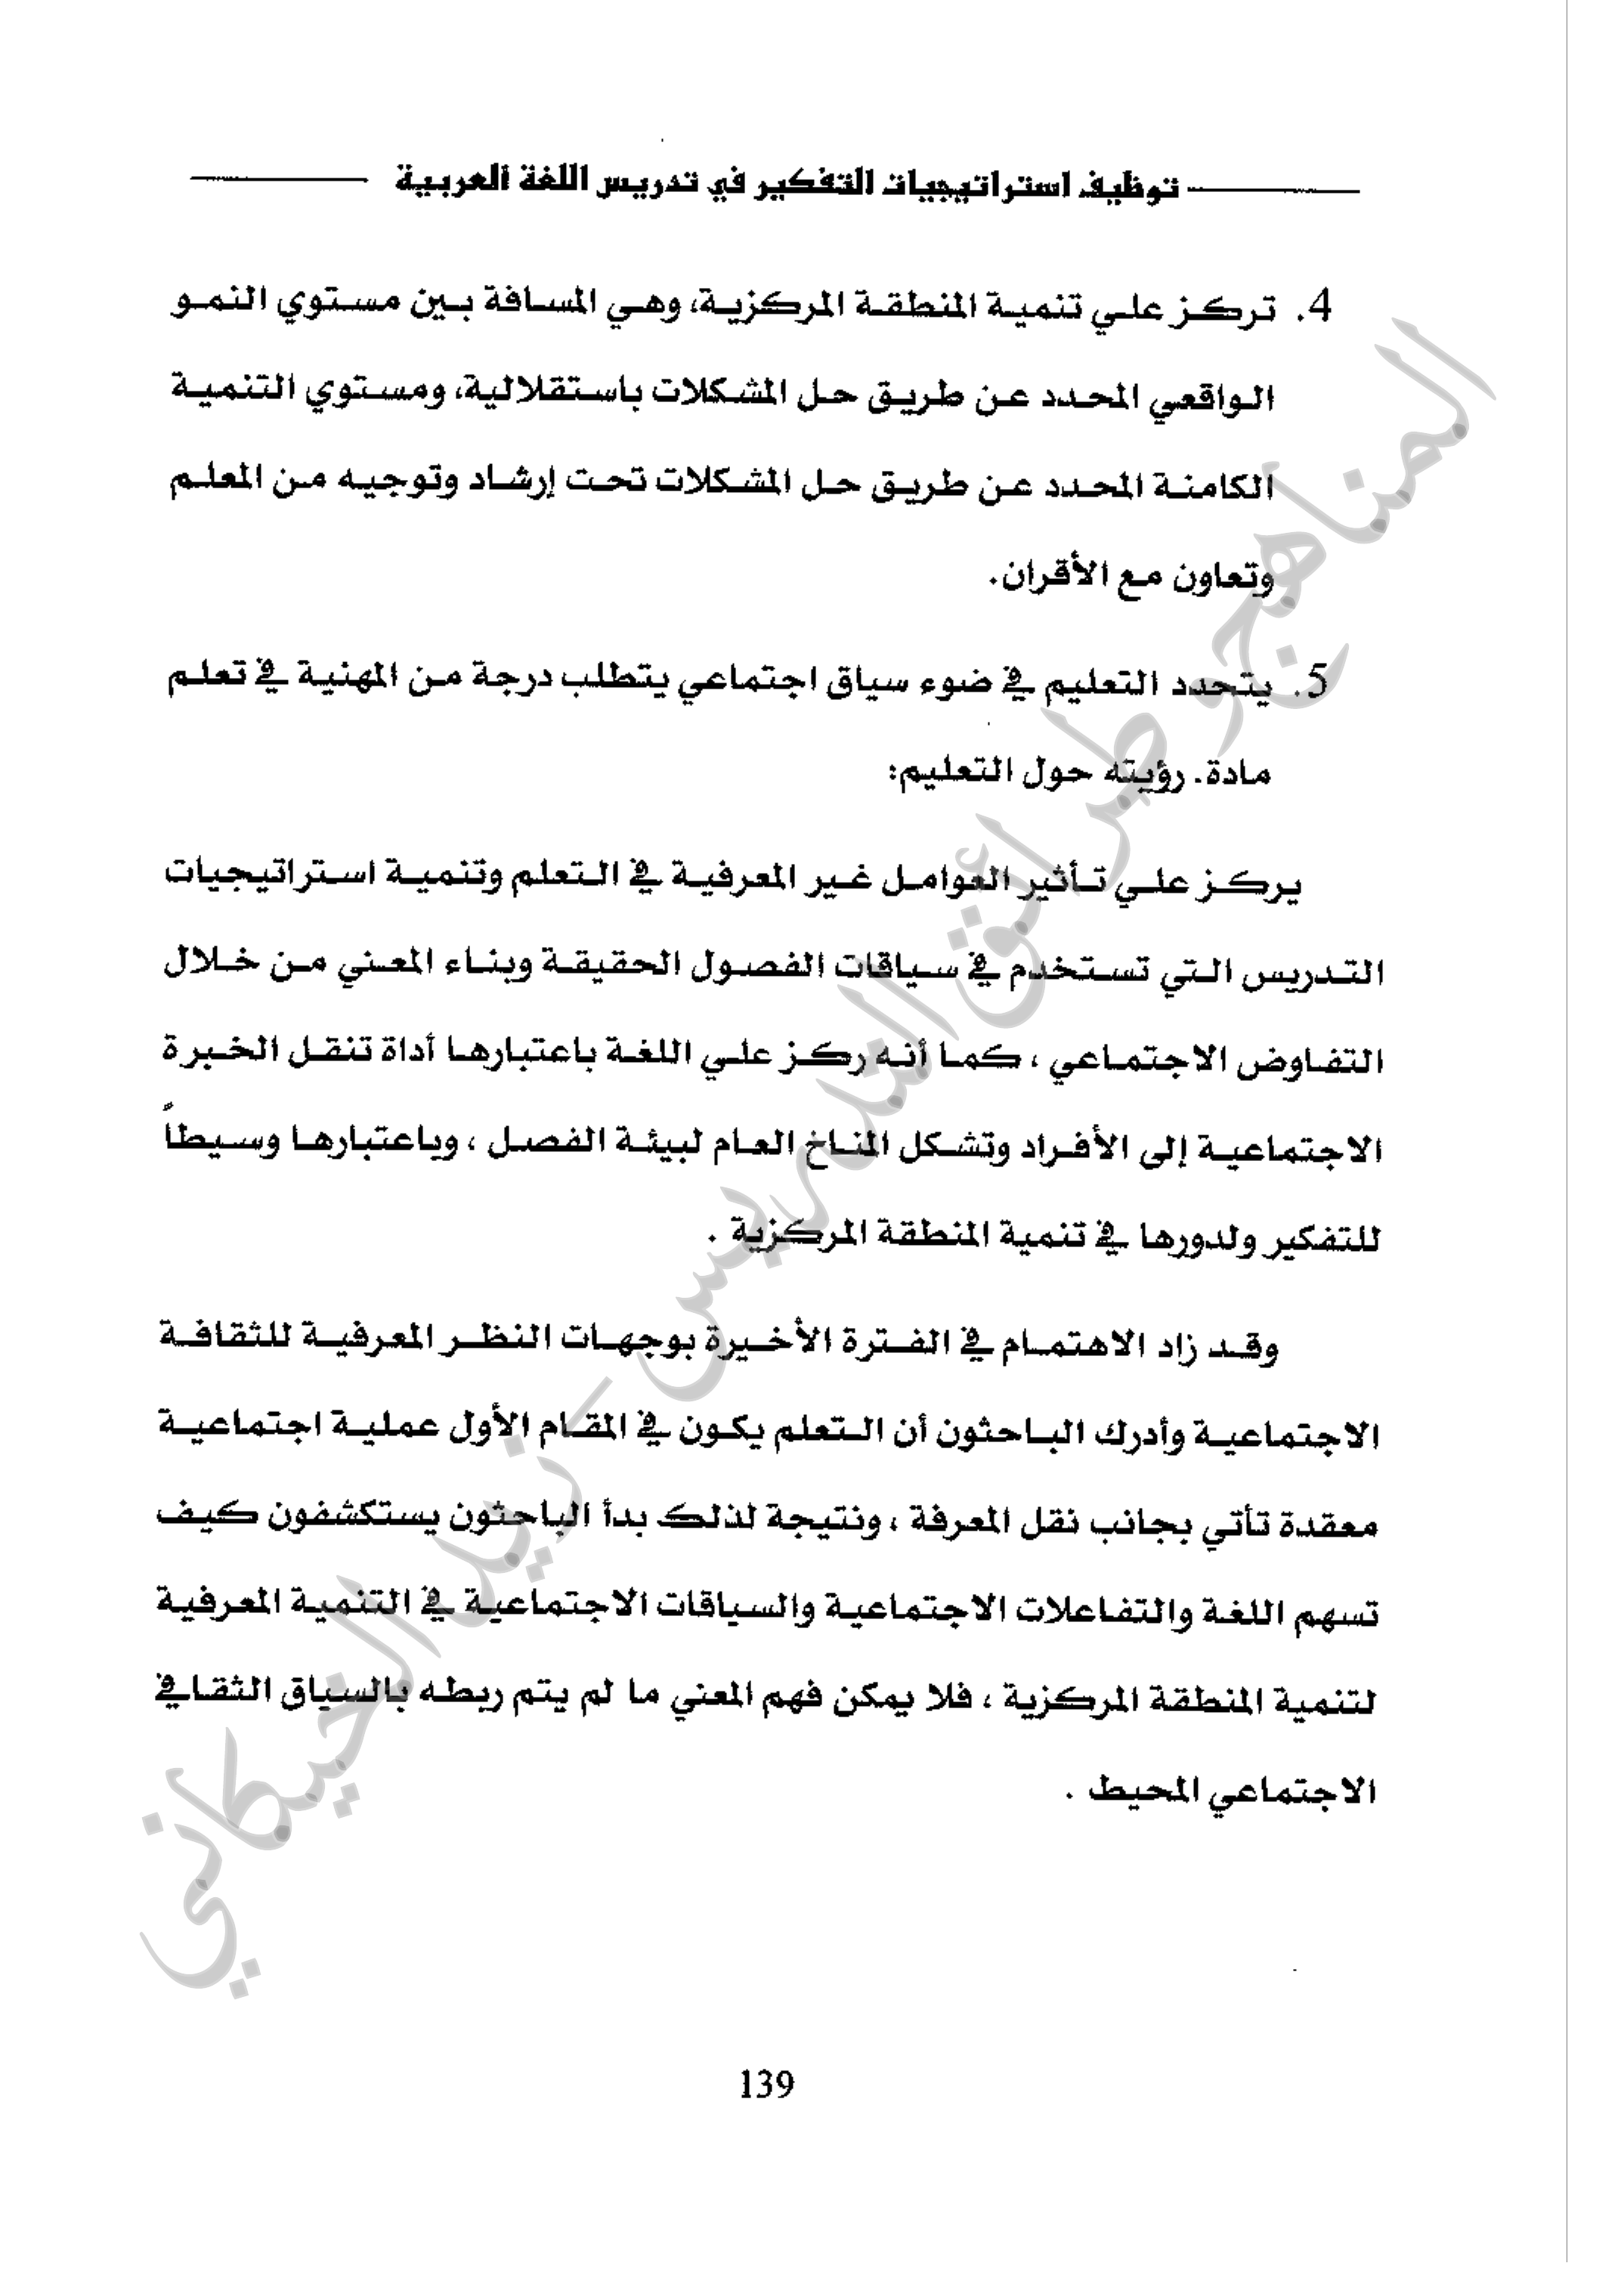 توظيف استراتيجيات التفكير في تدريس اللغة العربية
4. تركز علي تنمية المنطقة المركزية، وهي المسافة بين مستوي النمو
الواقعي المحدد عن طريق حل المشكلات باستقلالية، ومستوي التنمية
الكامنة المحدد عن طريق حل المشكلات تحت إرشاد وتوجيه من المعلم
وتعاون مع الأقران.
5. يتحدد التعليم في ضوء سياق اجتماعي يتطلب درجة من المهنية في تعلم
مادة. رؤيته حول التعليم:
يركز علي تأثير العوامل غير المعرفية في التعلم وتنمية استراتيجيات
التدريس التي تستخدم في سياقات الفصول الحقيقة وبناء المعني من خلال
التفاوض الاجتماعي ، كما أنه ركز علي اللغة باعتبارها أداة تنقل الخبرة
الاجتماعية إلى الأفراد وتشكل المناخ العام لبيئة الفصل ، وباعتبارها وسيطاً
للتفكير ولدورها في تنمية المنطقة المركزية .
وقد زاد الاهتمام في الفترة الأخيرة بوجهات النظر المعرفية للثقافة
الاجتماعية وأدرك الباحثون أن التعلم يكون في المقام الأول عملية اجتماعية
معقدة تأتي بجانب نقل المعرفة ، ونتيجة لذلك بدأ الباحثون يستكشفون كيف
تسهم اللغة والتفاعلات الاجتماعية والسياقات الاجتماعية في التنمية المعرفية
لتنمية المنطقة المركزية ، فلا يمكن فهم المعني ما لم يتم ربطه بالسياق الثقافي
الاجتماعي المحيط .
139
المناهج وطرائق التدريس - زيد الخيكاني